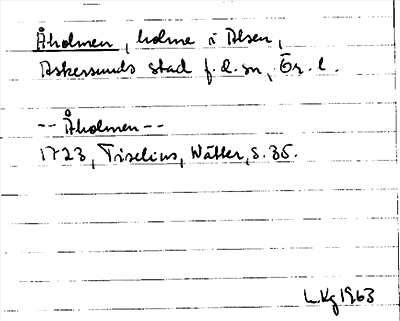 Åholmen, holme i Alsen,
Askersunds stad f.l.sn, Ör. l.
-- Åholmen --
1723, Tiselius, Wätter, s. 35.
LKg 1963